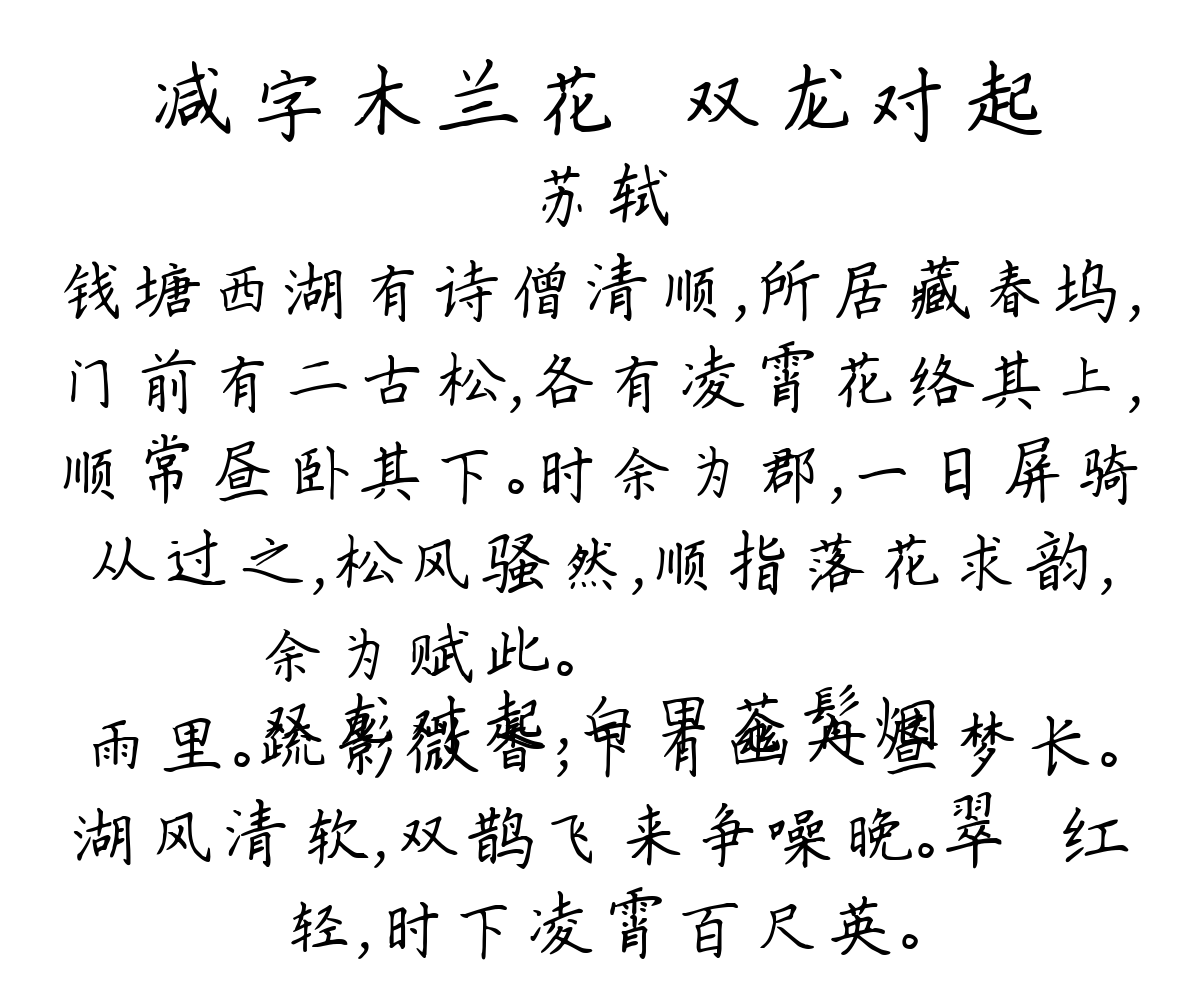 减字木兰花 双龙对起
苏轼
钱塘西湖有诗僧清顺,所居藏春坞,
门前有二古松,各有凌霄花络其上,
顺常昼卧其下。时余为郡,一日屏骑
从过之,松风骚然,顺指落花求韵,
余为赋此。
双龙对起,白甲苍髯烟
雨里。疏影微香,下有幽人昼梦长。
湖风清软,双鹊飞来争噪晚。翠 红
轻,时下凌霄百尺英。